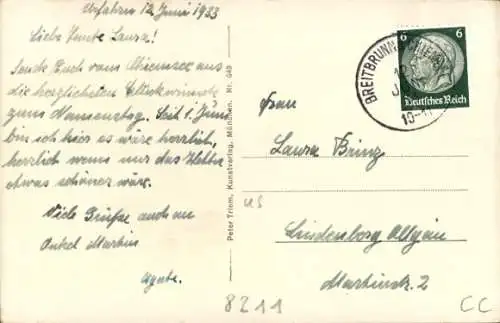 Urfahrn 12. Juni 1933
Liebe Tante Laura!
Sende Euch vom Chiemsee aus
die herzlichsten Glückwünsche
zum Namenstag. Seit 1. Juni
bin ich hier es wäre herrlich,
herrlich wenn nur das Wetter
etwas schöner wäre.
Viele Grüße auch an
Onkel Martin
Agathe.
Peter Trimm, Kunstverlag, München. Nr. 649
BREITBRUNN (CHIEMSEE)
6 6
Deutsches Reich
Frau
Laura Prinz
Lindenberg Allgäu
Martinstr. 2
8211
CC